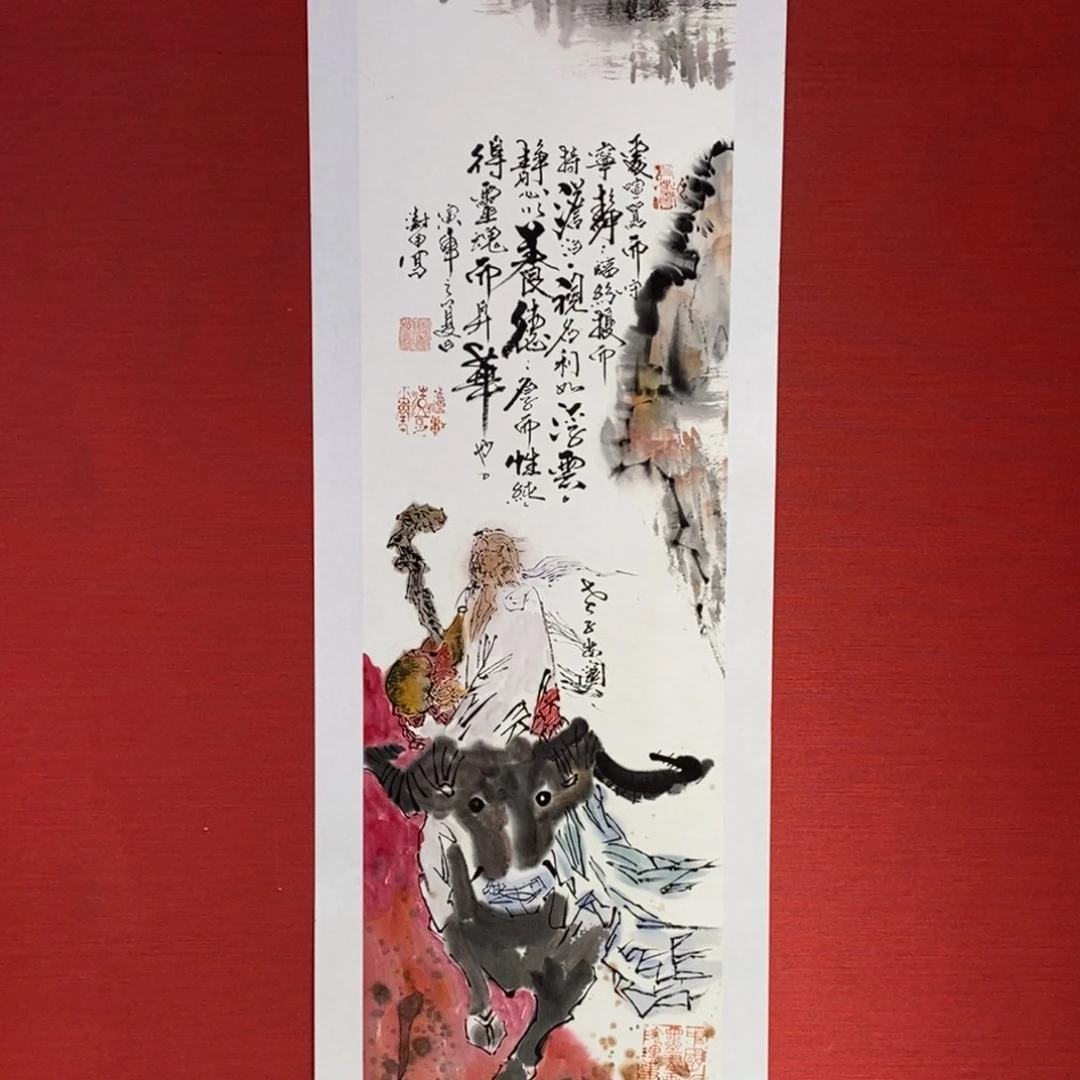 處喧嚣而守
寧靜臨紛擾而
持澹泊視名利如浮雲
靜心以養德厚而性純
得靈魂而昇華也
寅年之夏日
澍田寫
老子出關